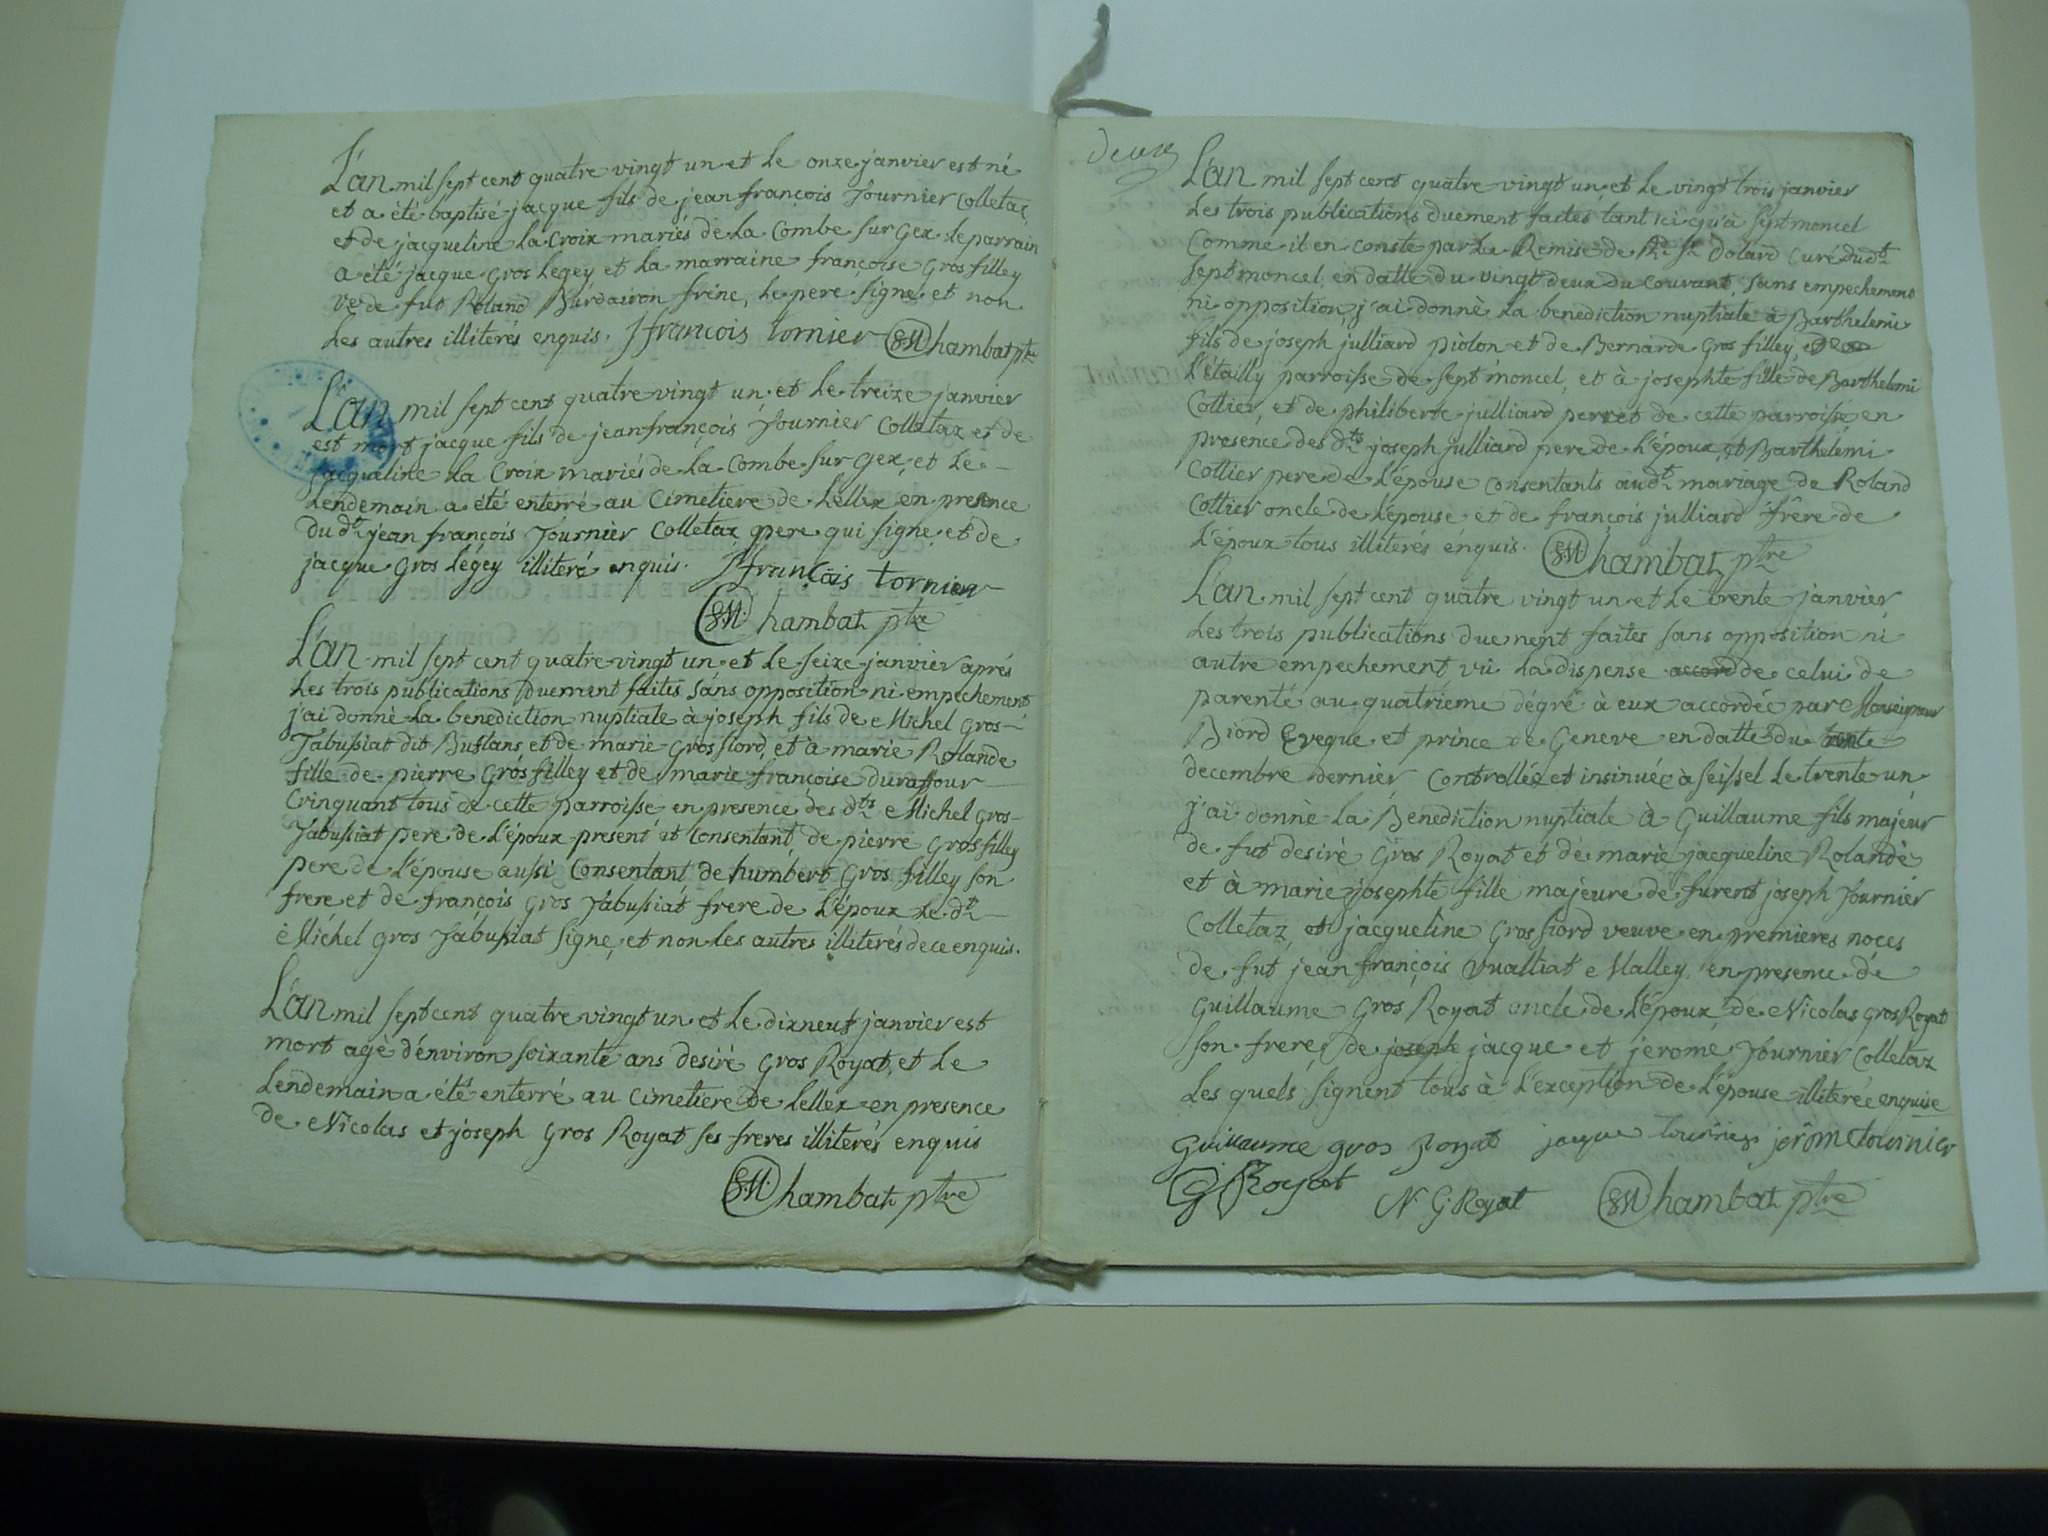 L'an mil sept cent quatre vingt un et le onze janvier est né
et a été baptisé jacque fils de jean françois Fournier Colletaz
et de jacqueline la Croix mariés de la Combe sur Gex le parrain
a été jacque Gros legey et la marraine françoise Grosfilley
ve de fut Roland Burdairon frêne, le pere signe et non
les autres illiterés enquis. Jfrançois tornier Chambat ptre
L'an mil sept cent quatre vingt un et le treize janvier
est mort jacque fils de jean françois Fournier Colletaz et de
jacqueline la Croix mariés de la Combe sur Gex, et le
lendemain a été enterré au Cimetiere de Lellex en presence
du dt jean françois Fournier Colletaz pere qui signe et de
jacque Gros legey illiteré enquis. Jfrançois tornier
Chambat ptre
L'an mil sept cent quatre vingt un et le seize janvier aprés
les trois publications duement faites sans opposition ni empechement
j'ai donné la benediction nuptiale à joseph fils de Michel Gros-
Jabusiat dit Buslans et de marie Grosfiord, et à marie Rolande
fille de pierre Grosfilley et de marie françoise duraffour
Crinquant tous de cette parroisse en presence des dts Michel Gros-
Jabusiat pere de l'époux present et Consentant, de pierre Grosfilley
pere de l'épouse aussi Consentant de humbert Gros filley son
frere et de françois Gros Jabusiat frere de l'époux le dt
Michel Gros Jabusiat signe, et non les autres illiterés de ce enquis.
L'an mil sept cent quatre vingt un et le dixneuf janvier est
mort agé d'environ soixante ans desiré Gros Royat, et le
lendemain a été enterré au Cimetiere de Lellex en presence
de Nicolas et joseph Gros Royat ses freres illiterés enquis
Chambat ptre
deux
L'an mil sept cent quatre vingt un et le vingt trois janvier
les trois publications duement faites tant ici qu'à septmoncel
Comme il en conste par la Remise de Rd Sr Dolard Curé dudt
septmoncel en datte du vingt deux du courant, sans empechement
ni opposition, j'ai donné la benediction nuptiale à Barthelemi
fils de joseph julliard piolon et de Bernarde Gros filley
l'étailly parroisse de septmoncel, et à josephte fille de Barthelemi
Cottier, et de philiberte julliard perret de cette parroisse en
presence des dts joseph julliard pere de l'époux, et Barthélemi
Cottier pere de l'épouse consentants audt mariage de Roland
Cottier oncle de l'épouse et de françois julliard frêre de
l'époux tous illiterés enquis. Chambat ptre
L'an mil sept cent quatre vingt un et le trente janvier
les trois publications duement faites sans opposition ni
autre empechement, vû la dispense accord de celui de
parenté au quatrieme dégré à eux accordée par Monseigneur
Biord Eveque et prince de Geneve en datte du trente
decembre dernier Controllée et insinuée à seissel le trente un,
j'ai donné la Benediction nuptiale à Guillaume fils majeur
de fut desiré Gros Royat et de marie jacqueline Rolandé
et à marie josephte fille majeure de furent joseph Fournier
Colletaz et jacqueline Grosfiord veuve en premieres noces
de fut jean françois Vualliat Malley, en presence de
Guillaume Gros Royat oncle de l'époux, de Nicolas Gros Royat
son frere, de joseph jacque et jerome Fournier Colletaz
les quels signent tous à l'exception de l'épouse illiterée enquise
Guillaume gros Royat jacque tournier jerôme tournier
G Royat N. G. Royat Chambat ptre